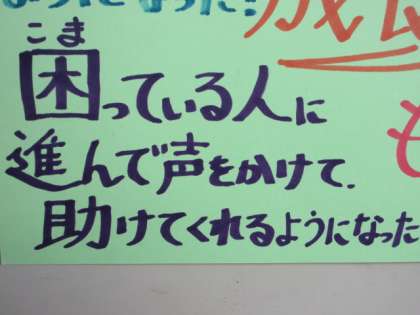 ようになった!
成長
こま
困っている人に
進んで声をかけて.
助けてくれるようになった
も